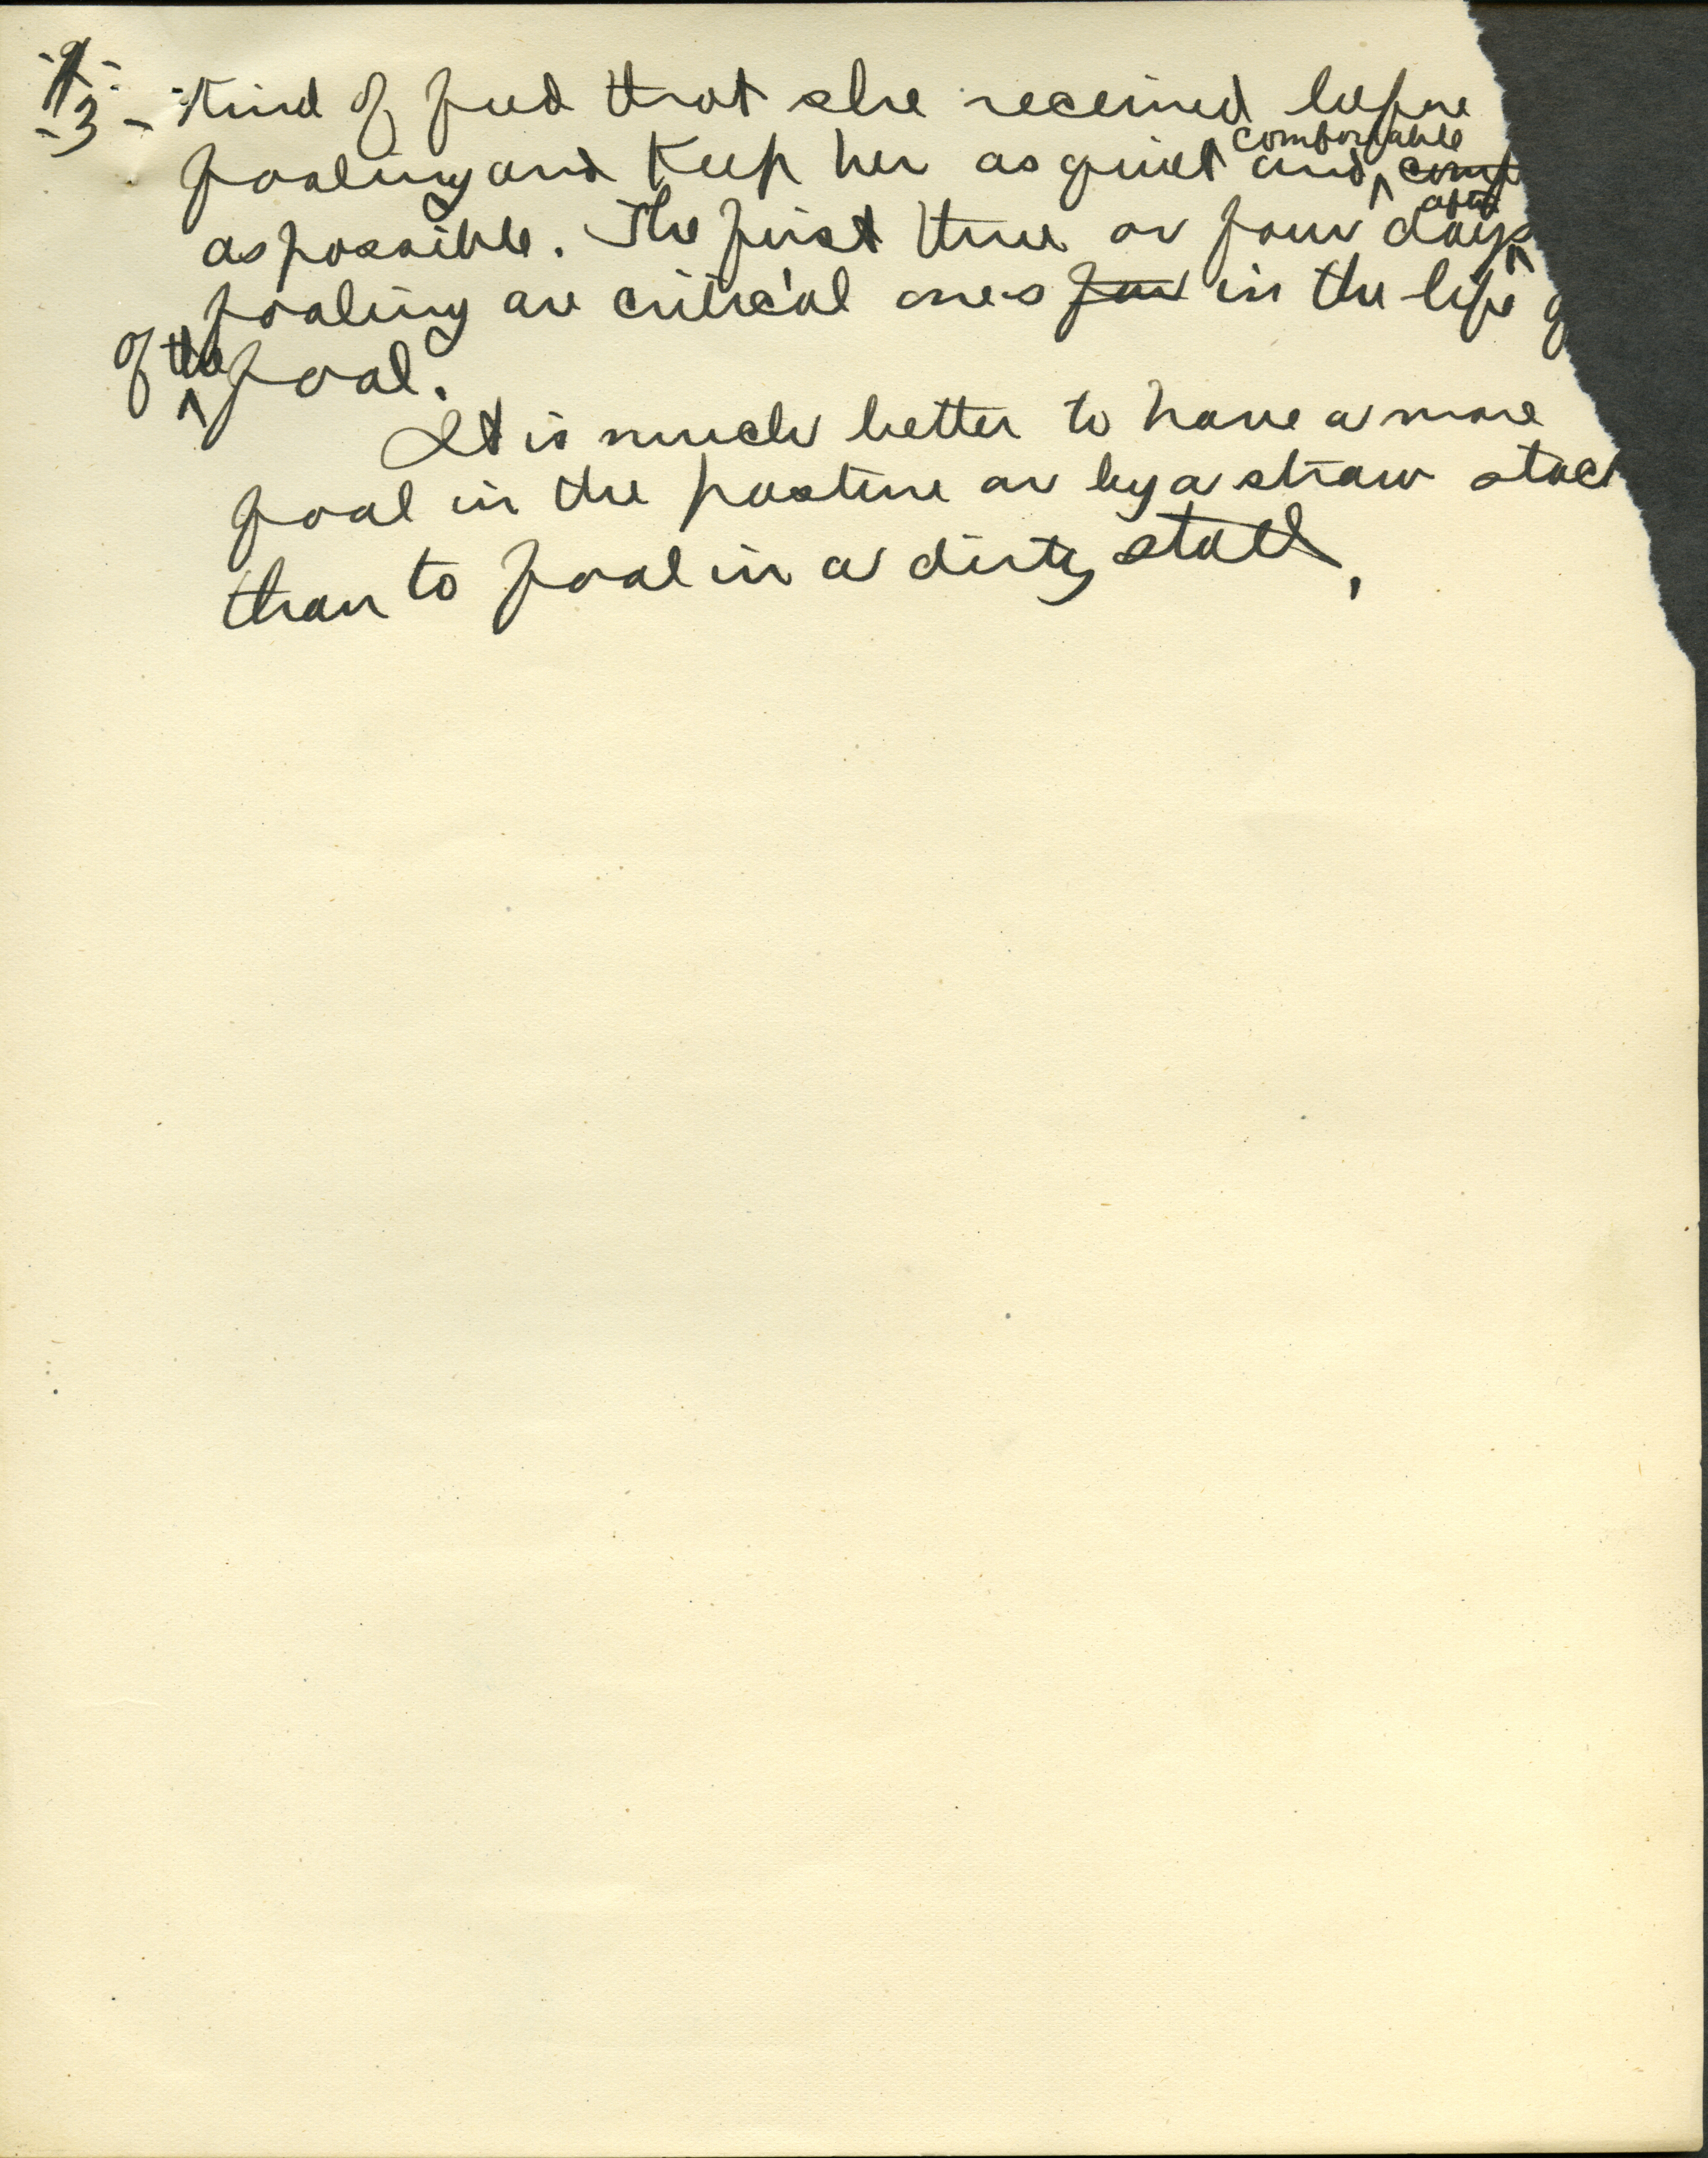 -3- kind of feed that she received before
foaling and keep her as quiet and ^comfortable comf
as possible. The first three or four days ^after
foaling are critical ones for in the life
of the ^ foal.
It is much better to have a mare
foal in the pasture or by a straw stack
than to foal in a dirty stall.